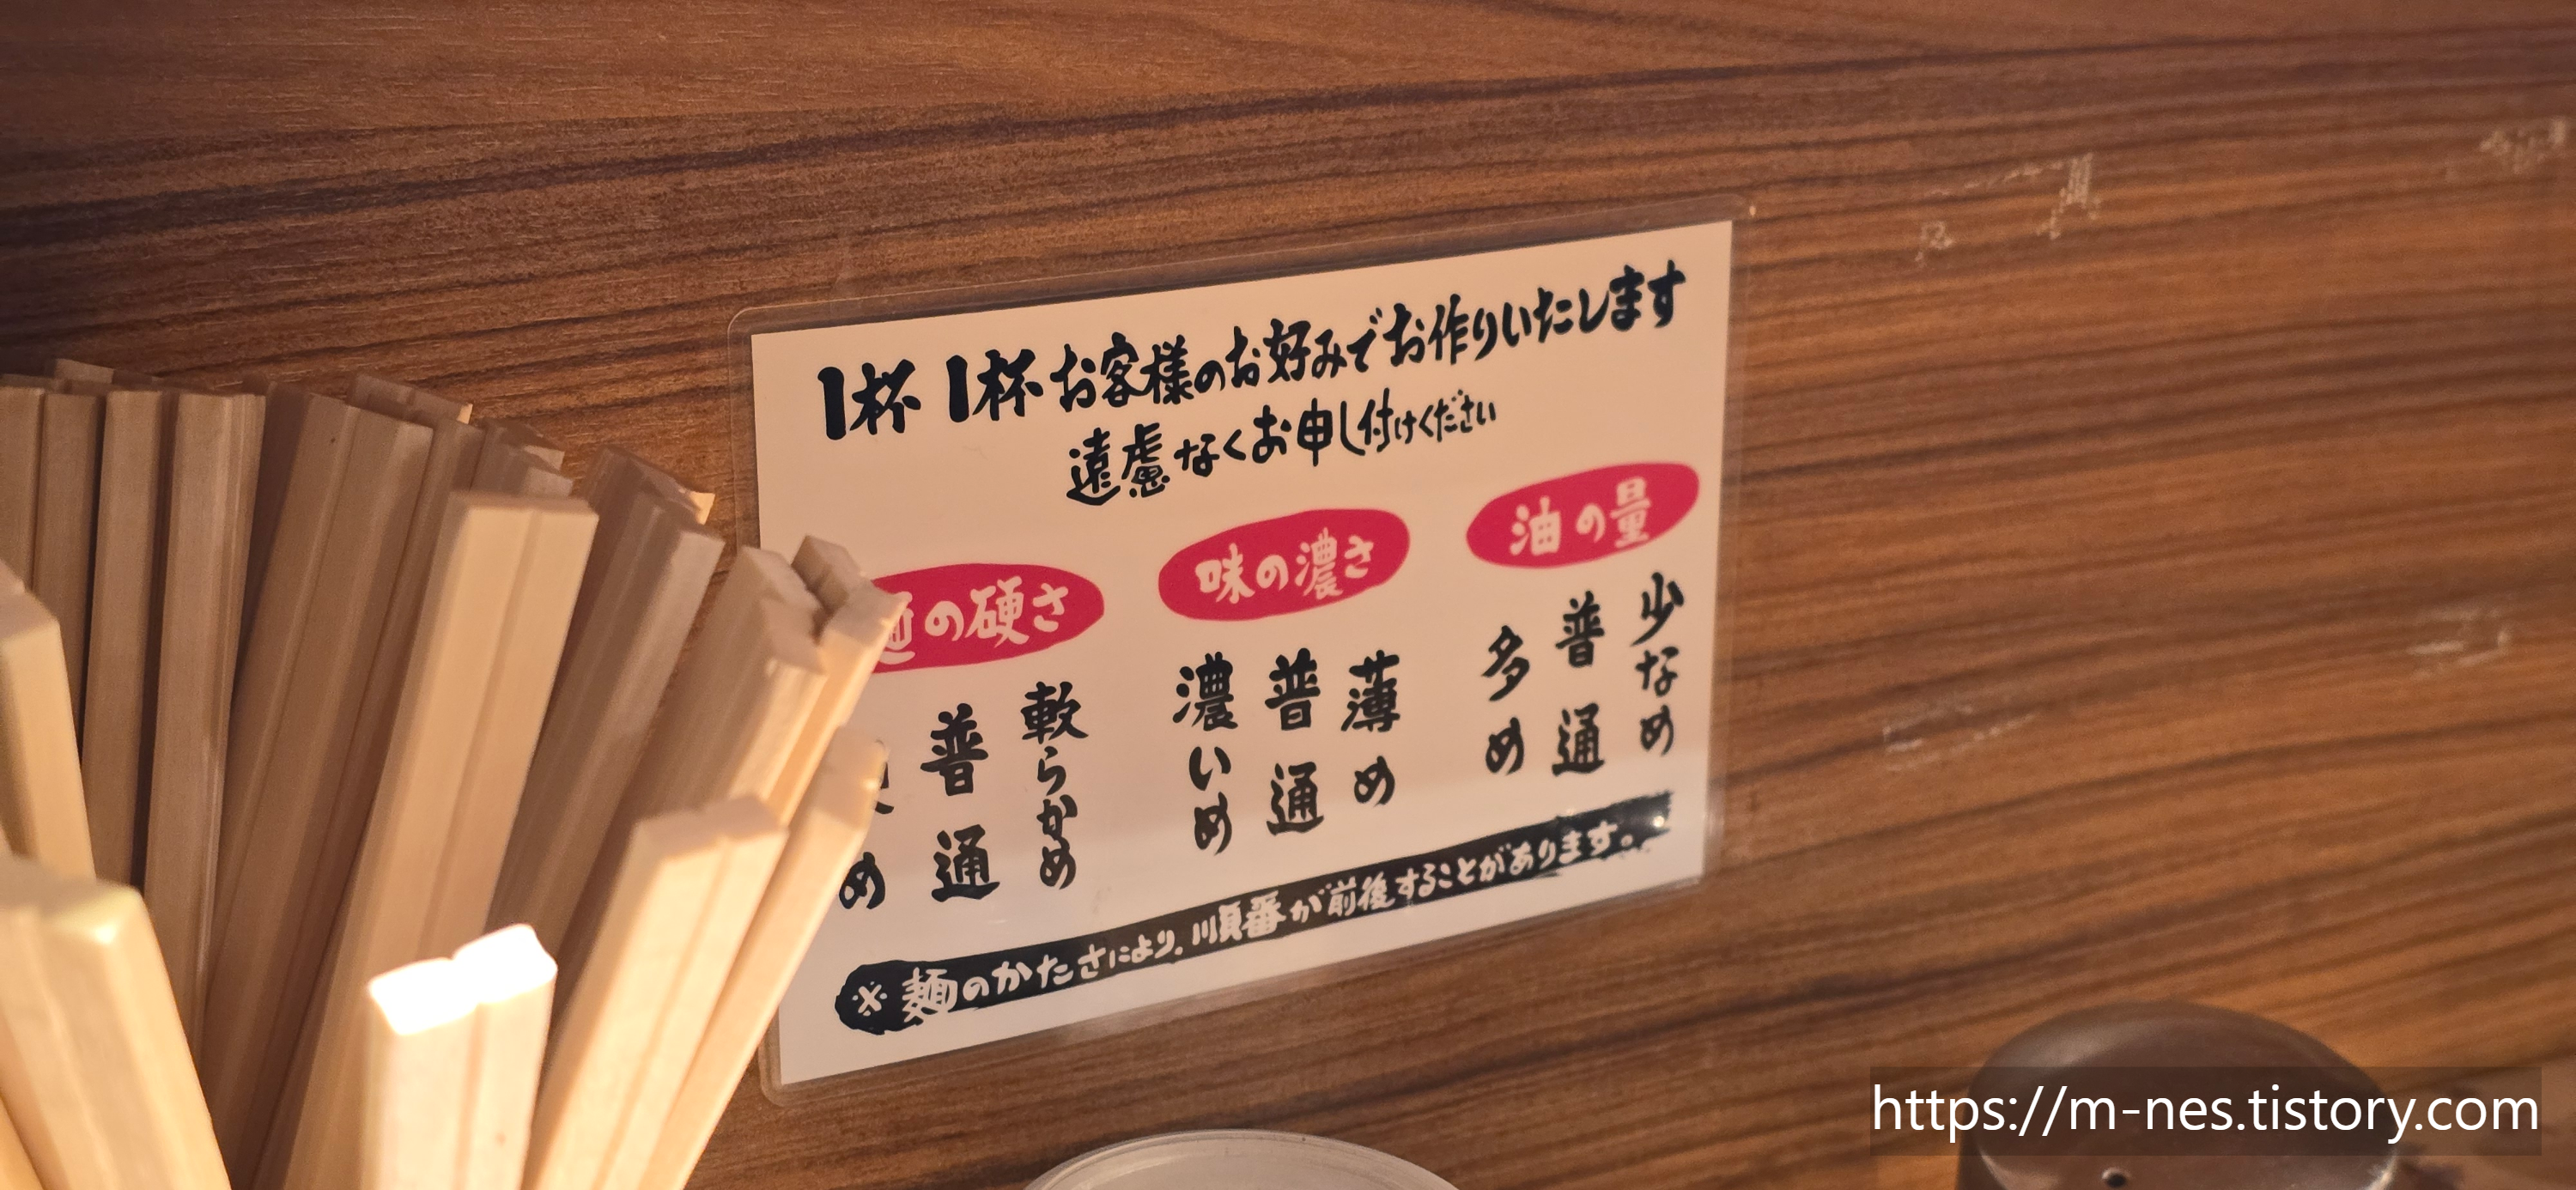 1杯 1杯お客様のお好みでお作りいたします
遠慮なくお申し付けください
油の量
少なめ
普通
多め
味の濃さ
薄め
普通
濃いめ
の硬さ
軟らかめ
普通
め
※麺のかたさにより、順番が前後することがあります。
https://m-nes.tistory.com